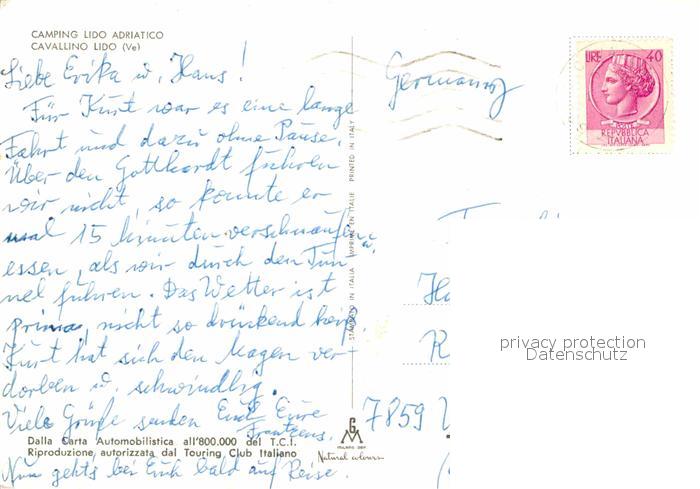 CAMPING LIDO ADRIATICO
CAVALLINO LIDO (Ve)
Liebe Erika u. Hans!
Für Kurt war es eine lange
Fahrt und dazu ohne Pause.
Über den Gotthardt fuhren
wir nicht, so konnte er
mal 15 Minuten verschnaufen u.
essen, als wir durch den Tun
nel fuhren. Das Wetter ist
prima, nicht so drückend heiß.
Kurt hat sich den Magen ver-
dorben u. schwindlig.
Viele Grüße senden Euch Eure
Frantzens.
Dalla Carta Automobilistica all'800.000 del T.C.I.
Riproduzione autorizzata dal Touring Club Italiano
Nun gehts bei Euch bald auf Reise.
STAMPATO IN ITALIA IMPRIMÉ EN ITALIE PRINTED IN ITALY
Natural colours
Germany
LIRE 40
POSTE
REPVBBLICA
ITALIANA
Ha
R
7859
privacy protection
Datenschutz